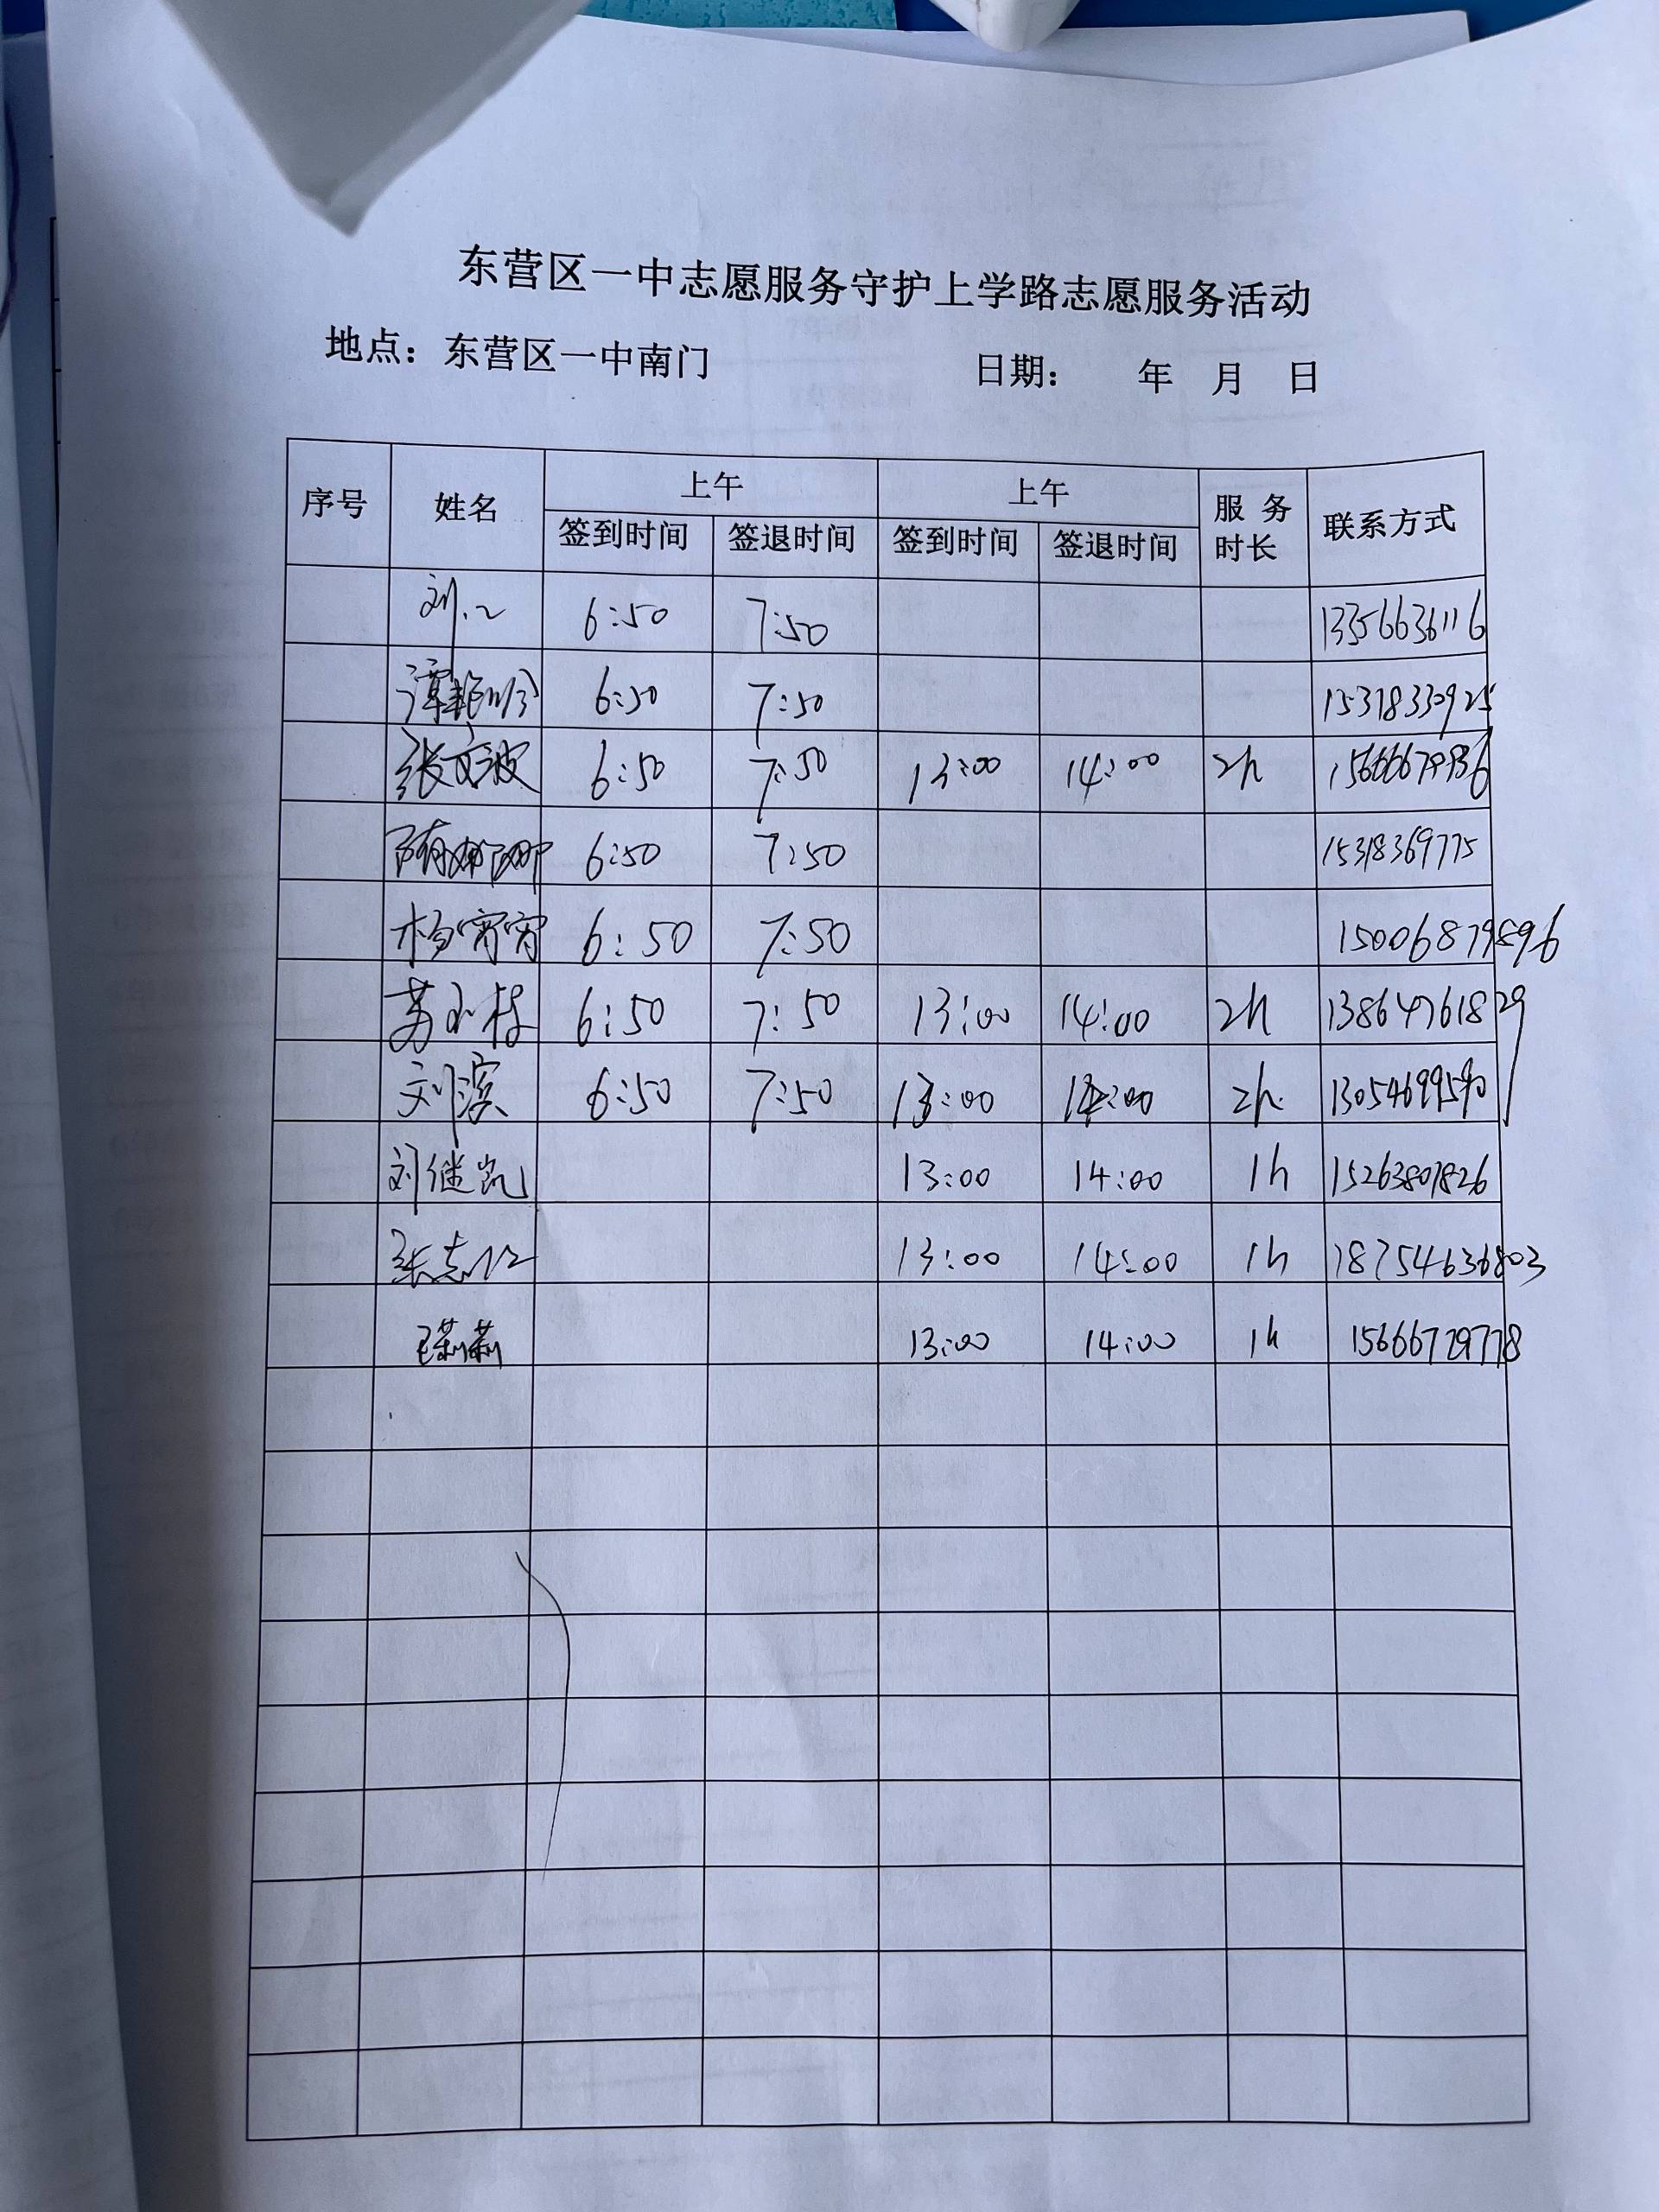 东营区一中志愿服务守护上学路志愿服务活动
地点：东营区一中南门 日期： 年 月 日
序号 姓名 上午 上午 服务时长 联系方式
签到时间 签退时间 签到时间 签退时间
6:50 7:50 13356636116
谭艳玲 6:50 7:50 15318330925
张文波 6:50 7:50 13:00 14:00 2h
隋娜娜 6:50 7:50 15318369775
杨宵宵 6:50 7:50 15006879896
6:50 7:50 13:00 14:00 2h 13864761829
刘滨 6:50 7:50 13:00 14:00 2h 13054699590
刘继凯 13:00 14:00 1h 15263801826
张志仁 13:00 14:00 1h 18754636803
王莉莉 13:00 14:00 1h 15666729778